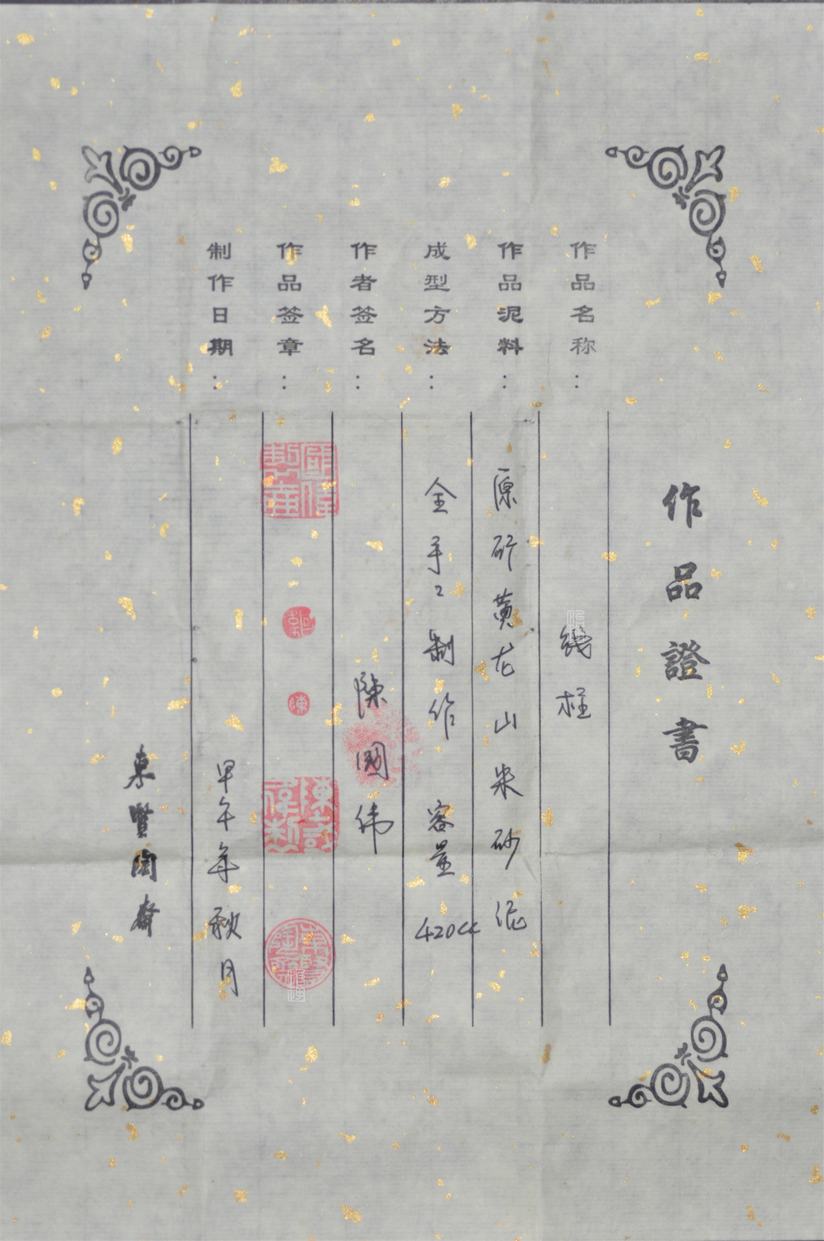 作品證書
作品名称：
幾柱
作品泥料：原矿黄龙山朱砂泥
成型方法：全手工制作 容量420cc
作者签名：陳國偉
作品签章：
陳
制作日期：甲午年秋月
東賢陶齋